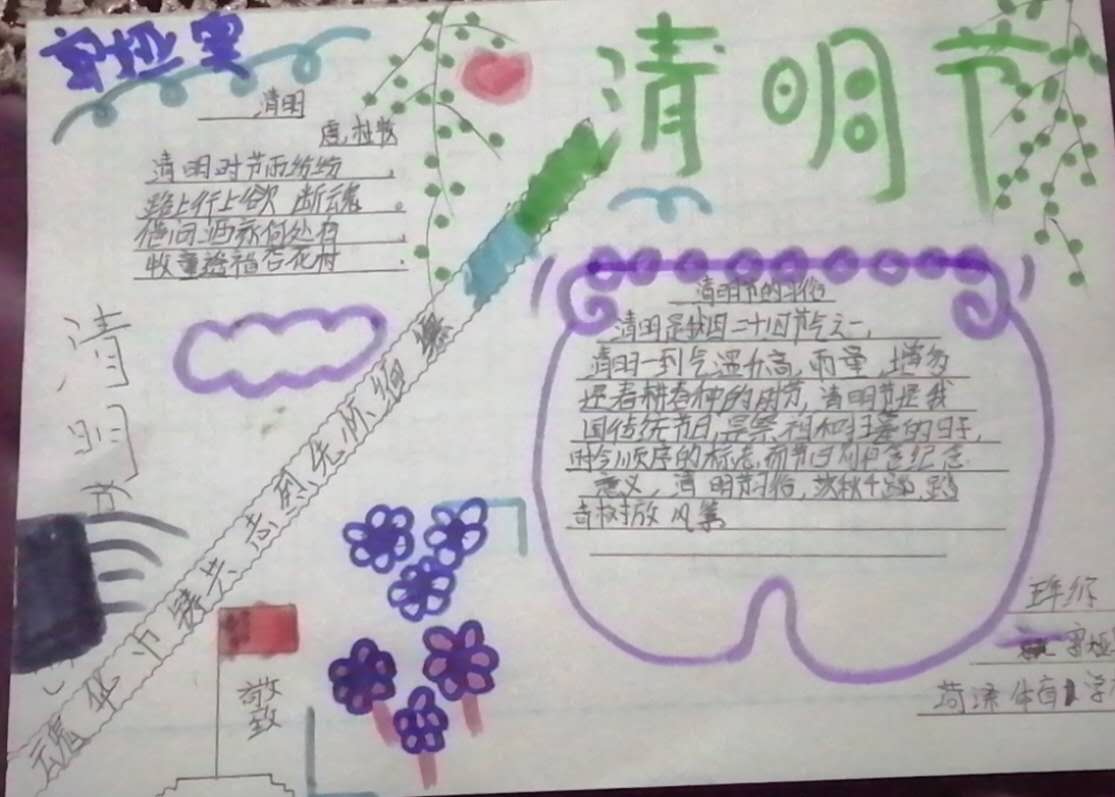 清明节
清明
唐,杜牧
清明时节雨纷纷,
路上行上欲 断魂。
借问酒家何处有,
牧童遥指杏花村.
清明
清明节的习俗
清明是我四二十四节气之一,
清明一到气温升高,雨量,增多
是春耕春种的时节,清明节是我
国传统节日,是祭祖和扫墓的日子,
时令顺序的标志,而节日则包含纪念
意义,清明节习俗,荡秋千踢,踏
青树放风筝
缅怀先烈志
魂
华
敬致
体育